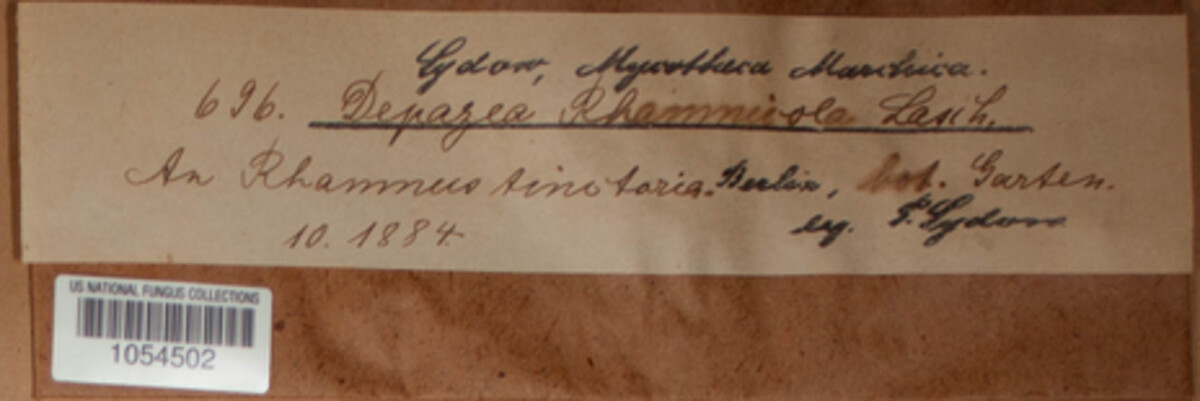 Sydow, Mycotheca Marchica.
696. Depazea Rhamnicola Lasch.
An Rhamnus tinctoria. Berlin, bot. Garten.
10. 1884 leg. P. Sydow
US NATIONAL FUNGUS COLLECTIONS
1054502